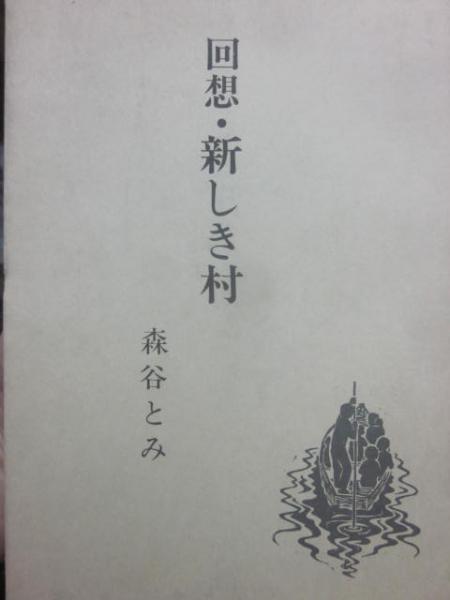 回想・新しき村
森谷とみ